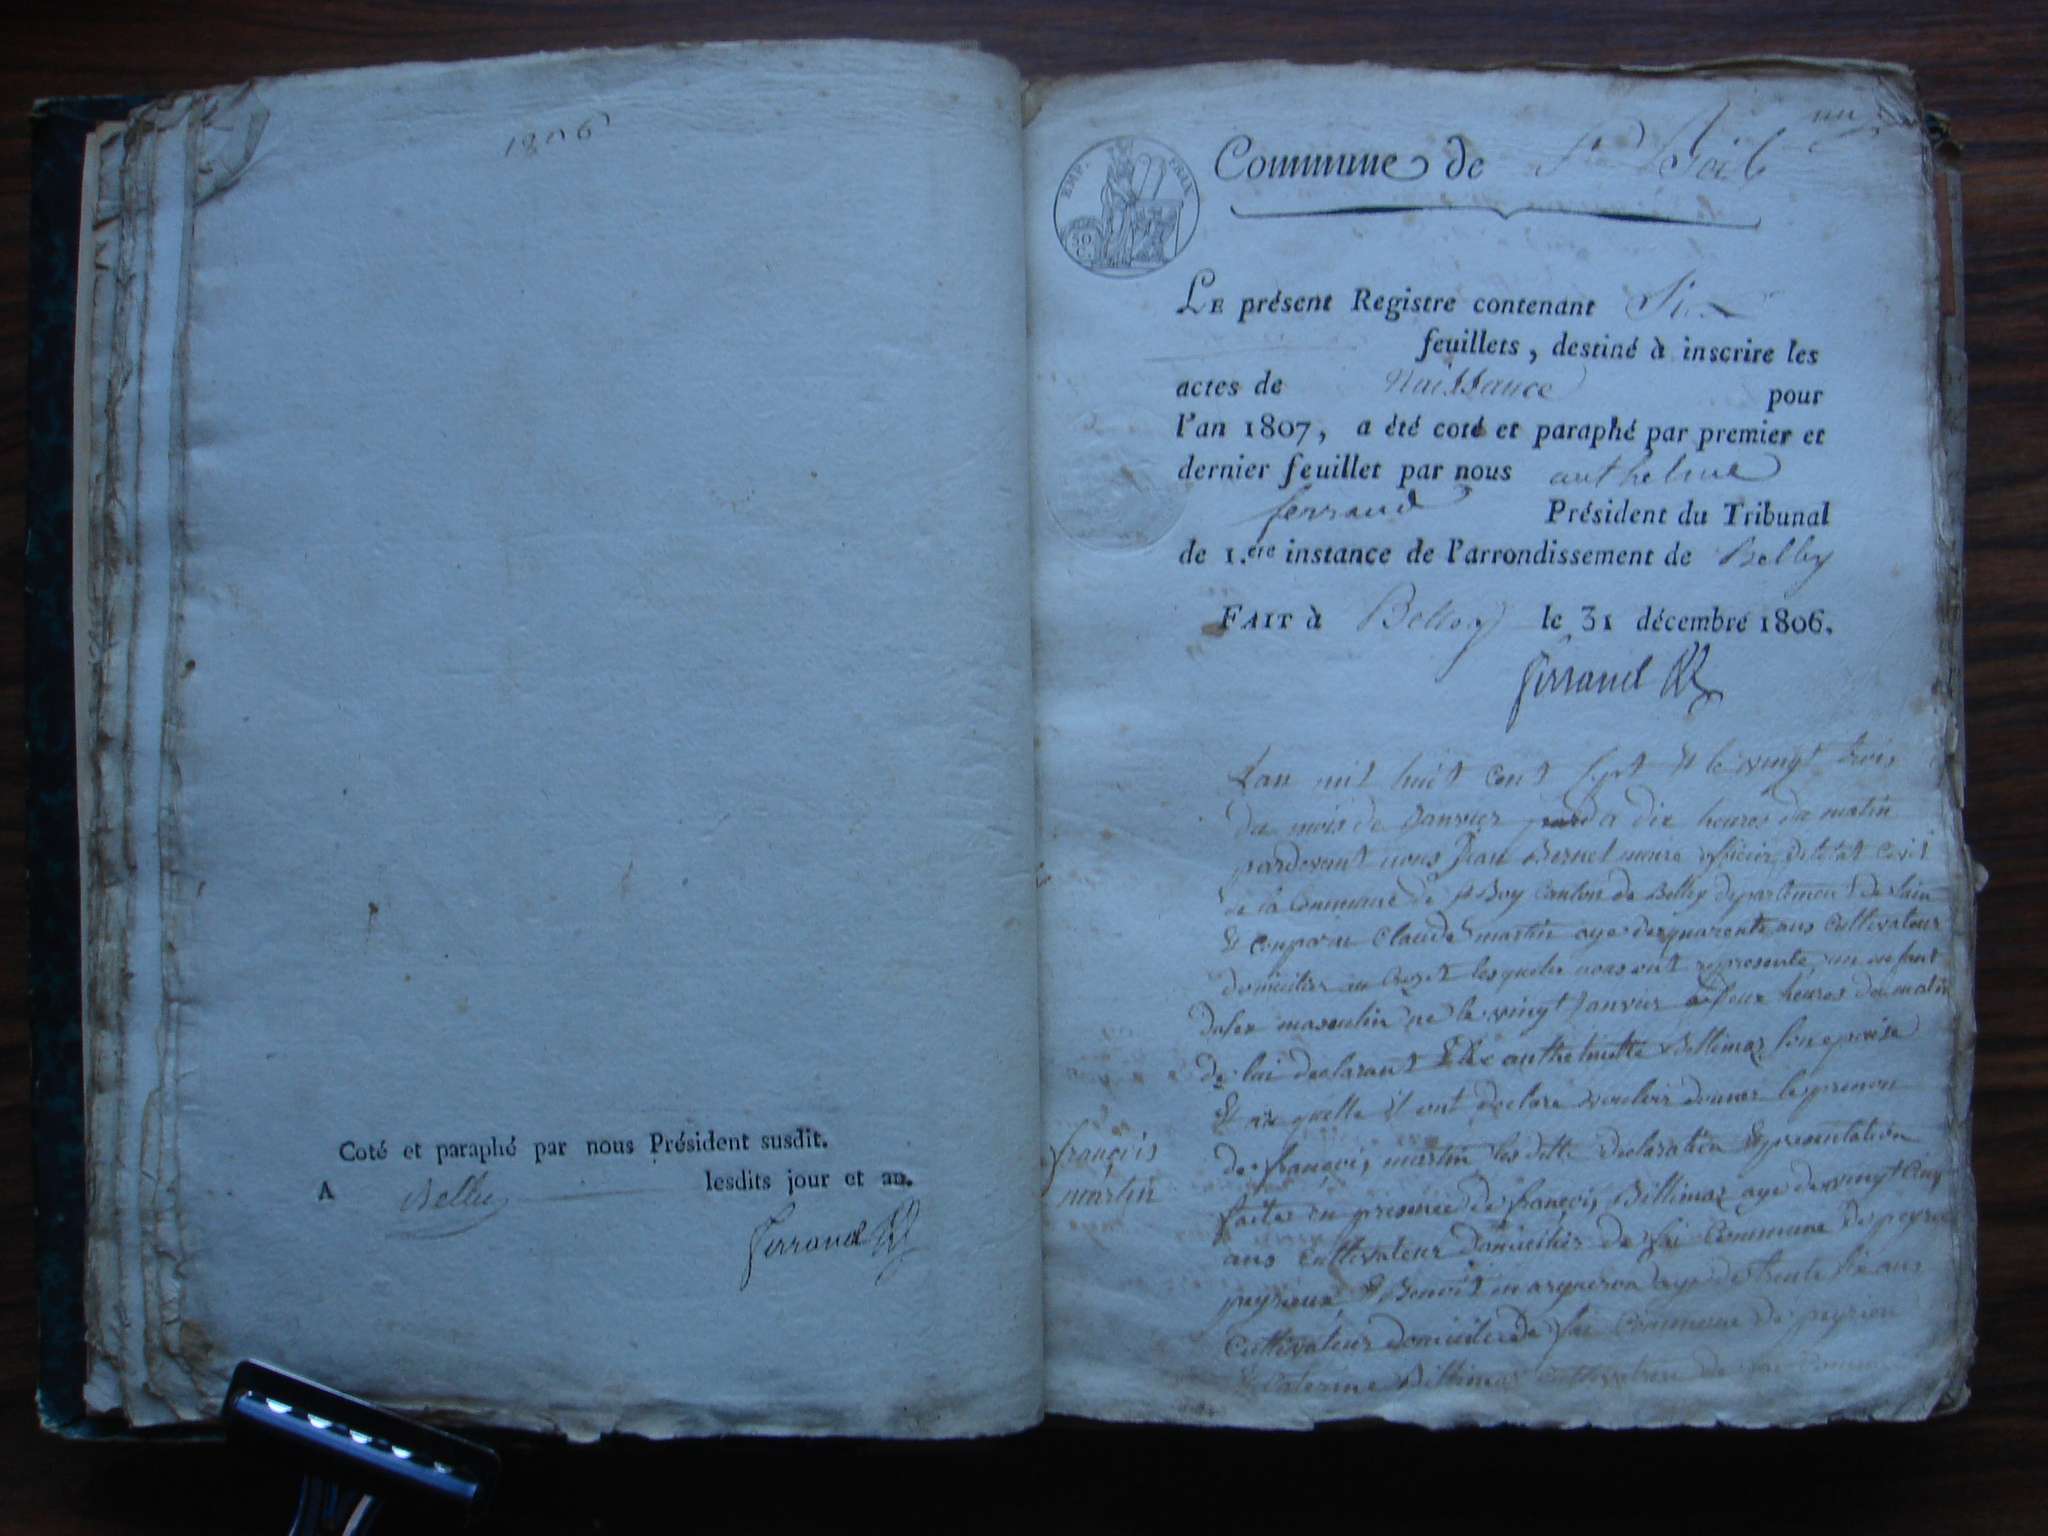 1806
Coté et paraphé par nous Président susdit.
A Belley lesdits jour et an.
Ferrand
un
EMP. FRAN.
Commune de St Boib
LE présent Registre contenant Six
feuillets, destiné à inscrire les
actes de Naissance pour
l'an 1807, a été coté et paraphé par premier et
dernier feuillet par nous anthelme
ferrand Président du Tribunal
de 1.ere instance de l'arrondissement de Belley
FAIT à Belley le 31 décembre 1806.
Ferrand
Lan mil huit cent sept & le vingt trois
du mois de Janvier a dix heures du matin
pardevant nous Jean Bernel maire officier de letat Civil
de la Commune de St Boy Canton de Belley departement de lain
Et Comparu Claude martin aye de quarente ans Cultivateur
domicilier au lesquelx nous ont represente un enfant
dusex masculin ne le vingt Janvier a deux heures du matin
de lui declarant & de anthelmette Billimaz son epouse
Et au quelle il ont declare vouloir donner le prenon
de françois martin les ditte declaration & presentation
faites en presence de françois Billimaz aye de vingt Cinq
ans Cultivateur domicilier de la Commune de peyrieu
peyrieux & Benoit aye de trente ans
Cultivateur domicilie de la Commune de peyrieu
& Caterine Billimaz de la
françois
martin